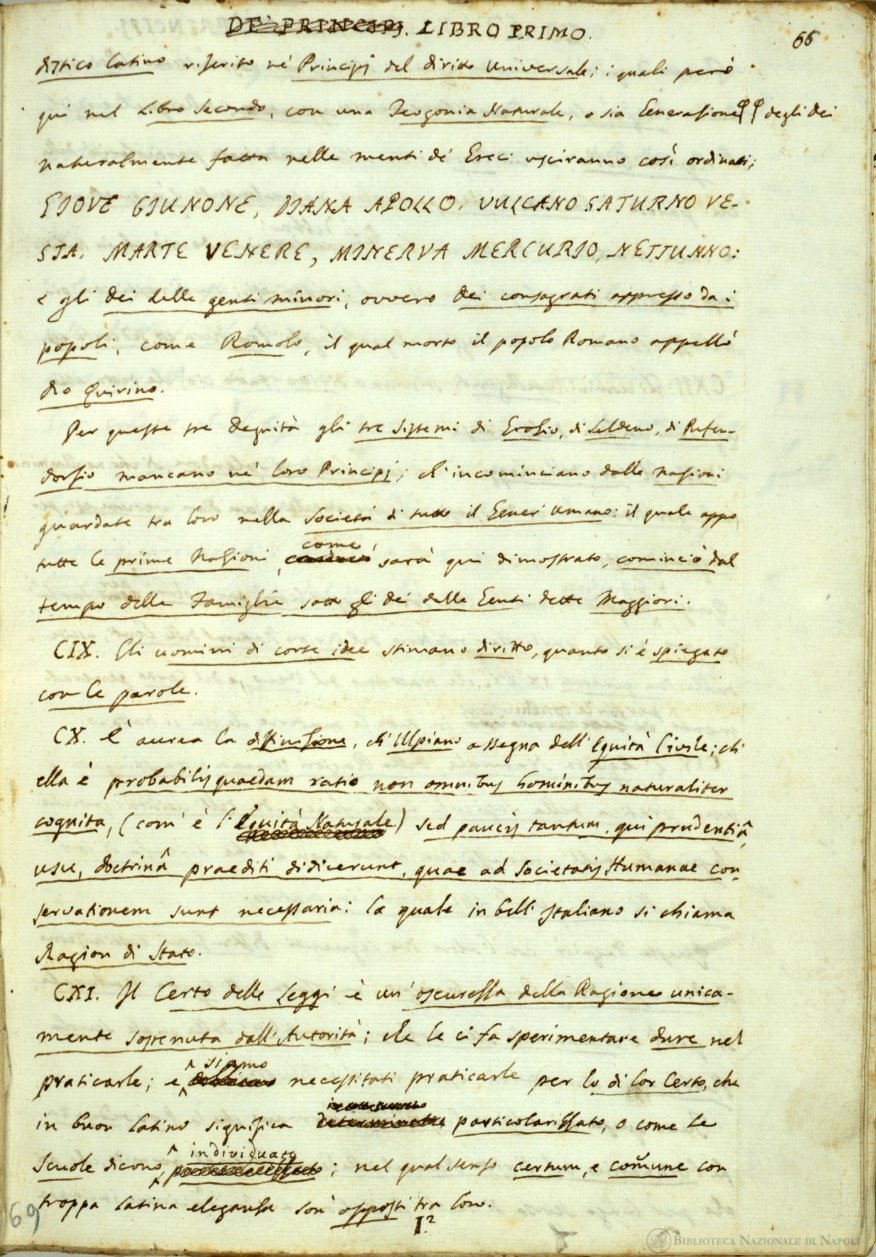 DE' PRINCIPJ. LIBRO PRIMO.
66
distico latino riferito ne' Principj del diritto universale; i quali però
qui nel Libro Secondo, con una Teogonia Naturale, o sia Generazione degli dei
naturalmente fatta nelle menti de' Greci usciranno così ordinati;
GIOVE GIUNONE, DIANA APOLLO, VULCANO SATURNO VE-
STA, MARTE VENERE, MINERVA MERCURIO, NETTUNNO:
e gli dei delle genti minori, ovvero dei consagrati appresso da i
popoli, come Romolo, il qual morto il popolo Romano appellò
dio Quirino.
Per queste tre degnità gli tre sistemi di Grozio, di Seldeno, di Pufen-
dorfio mancano ne' loro Principj; ch'incominciano dalle nazioni
guardate tra loro nella Società di tutto il Gener Umano: il quale appo
tutte le prime Nazioni, come sarà qui dimostrato, cominciò dal
tempo delle Famiglie sotto gli dei delle Genti dette Maggiori.
CIX. Gli uomini di corte idee stimano diritto, quanto si è spiegato
con le parole.
CX. È aurea la diffinizione, ch'Ulpiano assegna dell'Equità Civile; ch'
ella è probabilis quaedam ratio non omnibus hominibus naturaliter
cognita, (com' è l'Equità Naturale) sed paucis tantum, qui prudentiâ,
usu, doctrinâ praediti didicerunt, quae ad Societatis Humanae con
servationem sunt necessaria: la quale in bell'Italiano si chiama
Ragion di Stato.
CXI. Il Certo delle Leggi è un'oscurezza della Ragione unica-
mente sostenuta dall'Autorità; che le ci fa sperimentare dure nel
praticarle; e siamo necessitati praticarle per lo di lor Certo, che
in buon latino significa particolarizzato, o come le
Scuole dicono, individuato; nel qual senso certum, e com̃une con
troppa latina eleganza son' opposti tra loro.
I.2
69
BIBLIOTECA NAZIONALE DI NAPOLI